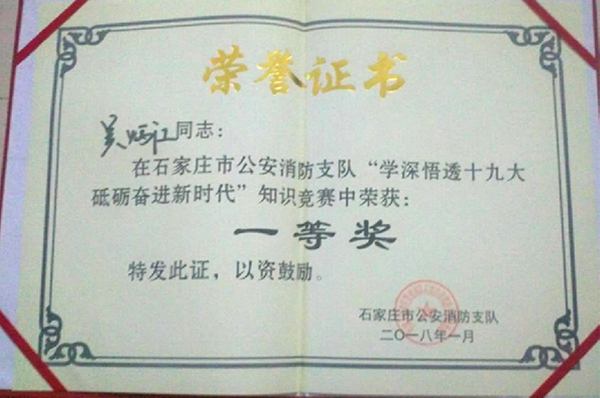 荣誉证书
吴炳江同志：
在石家庄市公安消防支队“学深悟透十九大
砥砺奋进新时代”知识竞赛中荣获：
一等奖
特发此证，以资鼓励。
石家庄市公安消防支队
二〇一八年一月